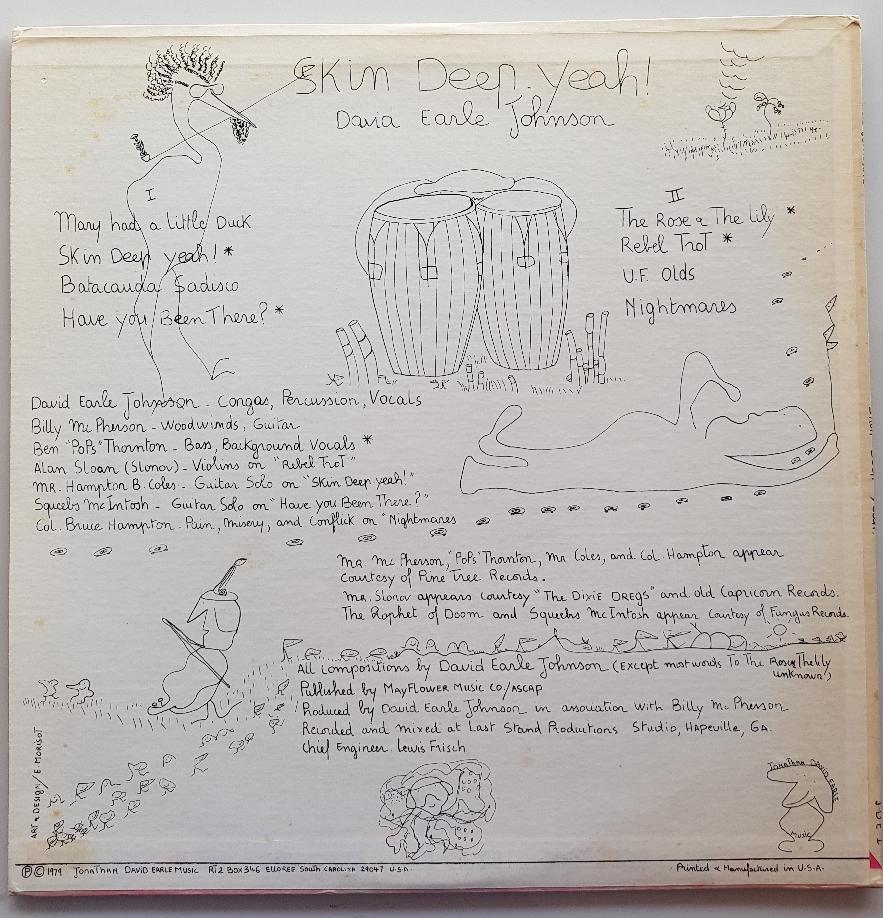 Skin Deep Yeah!
David Earle Johnson
I
Mary had a little Duck
Skin Deep yeah! *
Batacauda Sadisco
Have you Been There? *
II
The Rose & The Lily *
Rebel Trot *
U.F. Olds
Nightmares
David Earle Johnson - Congas, Percussion, Vocals
Billy McPherson - Woodwinds, Guitar
Ben "Pops" Thornton - Bass, Background Vocals *
Alan Sloan (Slonov) - Violins on "Rebel Trot"
MR. Hampton B. Coles - Guitar Solo on "Skin Deep yeah!"
Squeebs McIntosh - Guitar Solo on "Have you Been There?"
Col. Bruce Hampton - Pain, Misery, and Conflick on "Nightmares
Mr. McPherson, "Pops" Thornton, Mr Coles, and Col. Hampton appear
courtesy of Pine Tree Records.
Mr. Slonov appears courtesy "The Dixie Dregs" and old Capricorn Records.
The Prophet of Doom and Squeebs McIntosh appear courtesy of Fungus Records.
All compositions by David Earle Johnson (Except most words To The Rose & The lily
unknown)
Published by MAYFLOWER MUSIC CO/ASCAP
Produced by David Earle Johnson in association with Billy McPherson
Recorded and mixed at Last Stand Productions Studio, Hapeville, GA.
Chief Engineer. Lewis Frisch
ART & DESIGN / E. MORISOT
JONATHAN DAVID EARLE
MUSIC
℗ © 1979 JONATHAN DAVID EARLE MUSIC RT2 BOX 346 ELLOREE SOUTH CAROLINA 29047 U.S.A.
Printed & Manufactured in U.S.A.